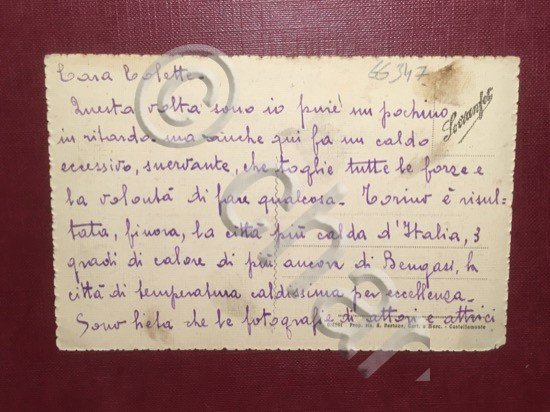 Cara Colette,
66347
Questa volta sono io pure un pochino
in ritardo ma anche qui fa un caldo
eccessivo, snervante, che toglie tutte le forze e
la volontà di fare qualcosa. Torino è risul-
tata, finora, la città più calda d'Italia, 3
gradi di calore di più ancora di Bengasi, la
città di temperatura caldissima per eccellenza.
Sono lieta che le fotografie di attori e attrici
Prop. ris. Cart. e Merc. - Castellamonte
©